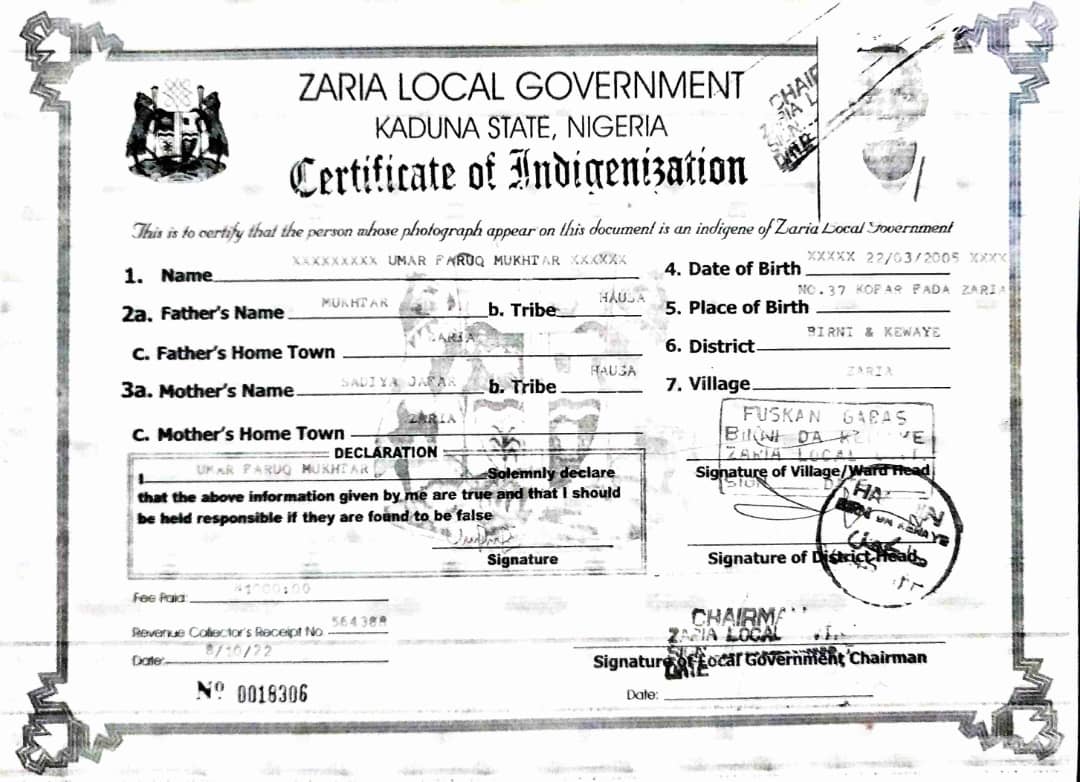 ZARIA LOCAL GOVERNMENT
KADUNA STATE, NIGERIA
Certificate of Indigenization
This is to certify that the person whose photograph appear on this document is an indigene of Zaria Local Government
1. Name XXXXXXXXX UMAR FARUQ MUKHTAR XXXXXX
2a. Father's Name MUKHTAR b. Tribe HAUSA
C. Father's Home Town ZARIA
3a. Mother's Name SADIYA JAFAR b. Tribe HAUSA
C. Mother's Home Town ZARIA
4. Date of Birth XXXXX 22/03/2005 XXXX
5. Place of Birth NO.37 KOFAR FADA ZARIA
6. District BIRNI & KEWAYE
7. Village ZARIA
DECLARATION
I UMAR FARUQ MUKHTAR Solemnly declare
that the above information given by me are true and that I should
be held responsible if they are found to be false
Signature
FUSKAN GABAS
ZARIA LOCAL
SIGN
Signature of Village/Ward Head
Signature of District Head
Fee Paid:
Revenue Collector's Receipt No 564388
Date: 8/10/22
Nº 0018306
ZARIA LOCAL
Signature of Local Government Chairman
DATE
Date: